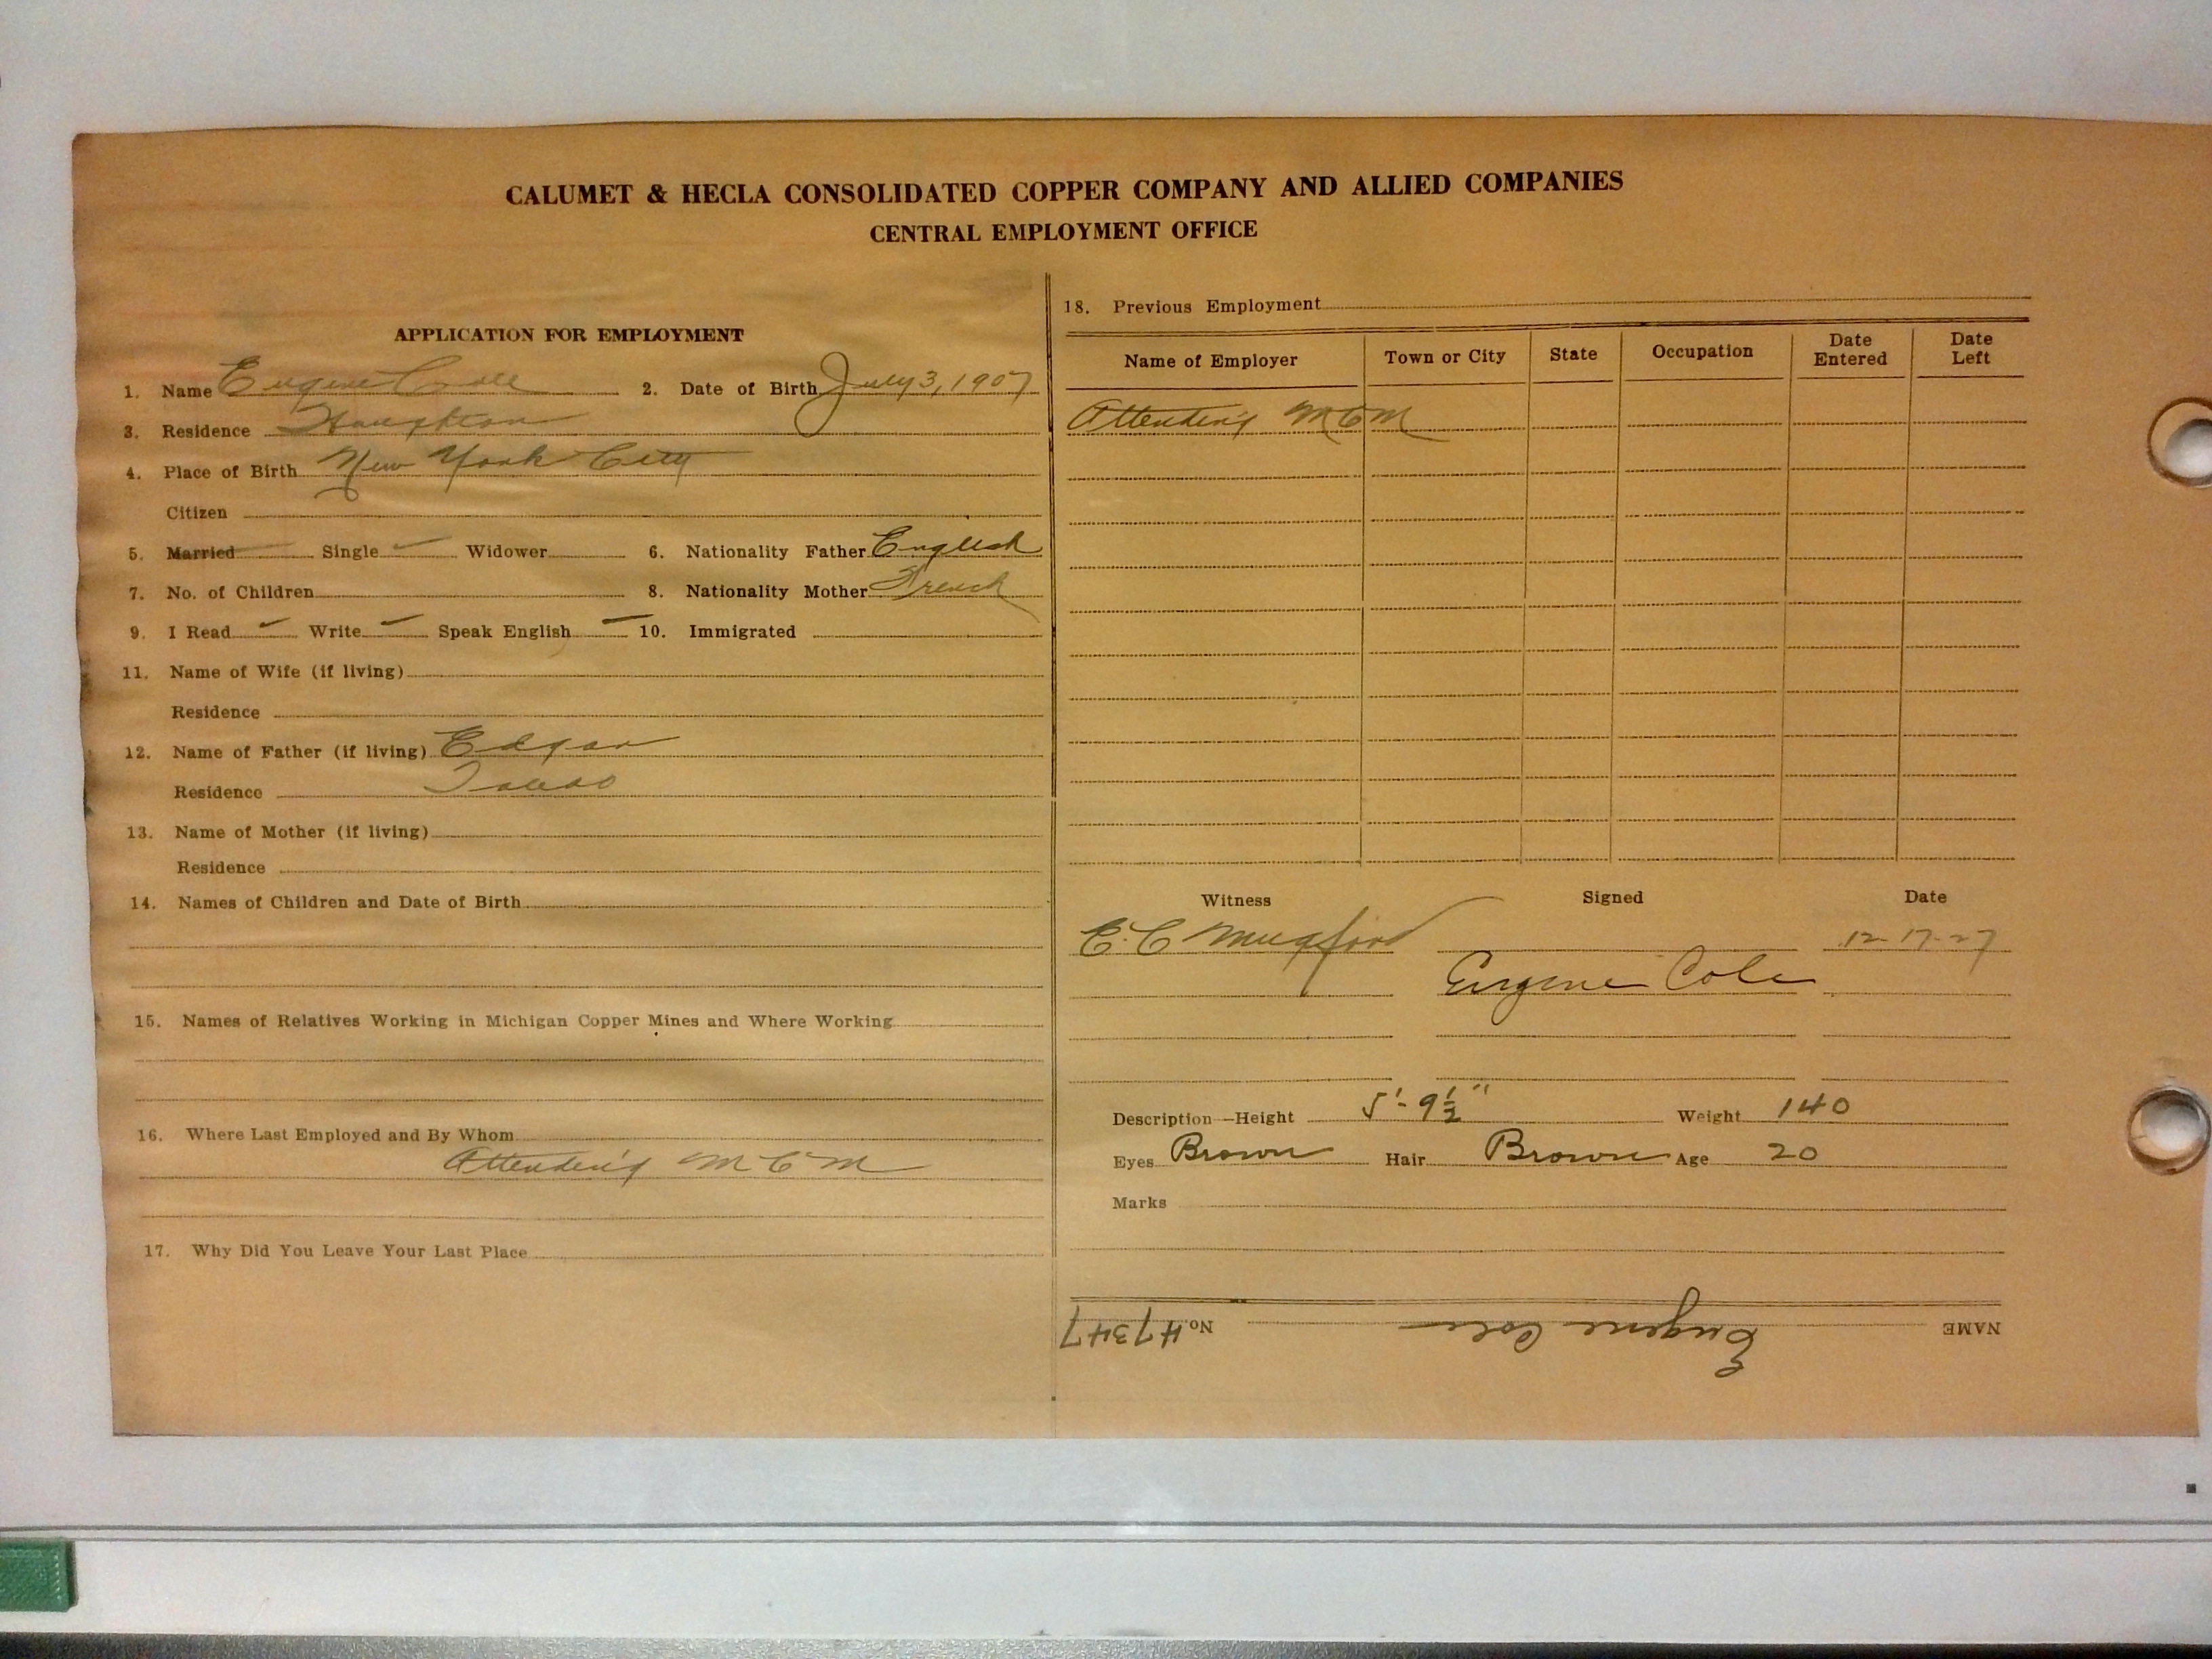 CALUMET & HECLA CONSOLIDATED COPPER COMPANY AND ALLIED COMPANIES
CENTRAL EMPLOYMENT OFFICE
APPLICATION FOR EMPLOYMENT
1. Name Eugene Cole 2. Date of Birth July 3, 1907
3. Residence Houghton
4. Place of Birth New York City
Citizen
5. Married Single ✓ Widower 6. Nationality Father English
7. No. of Children 8. Nationality Mother French
9. I Read ✓ Write ✓ Speak English ✓ 10. Immigrated
11. Name of Wife (if living)
Residence
12. Name of Father (if living) Edgar
Residence Toledo
13. Name of Mother (if living)
Residence
14. Names of Children and Date of Birth
15. Names of Relatives Working in Michigan Copper Mines and Where Working
16. Where Last Employed and By Whom
Attending M C M
17. Why Did You Leave Your Last Place
18. Previous Employment
Name of Employer Town or City State Occupation Date Entered Date Left
Attending M C M
Witness Signed Date
E. C. Mugford 12-17-27
Eugene Cole
Description—Height 5'-9½" Weight 140
Eyes Brown Hair Brown Age 20
Marks
NAME Eugene Cole No. 47347